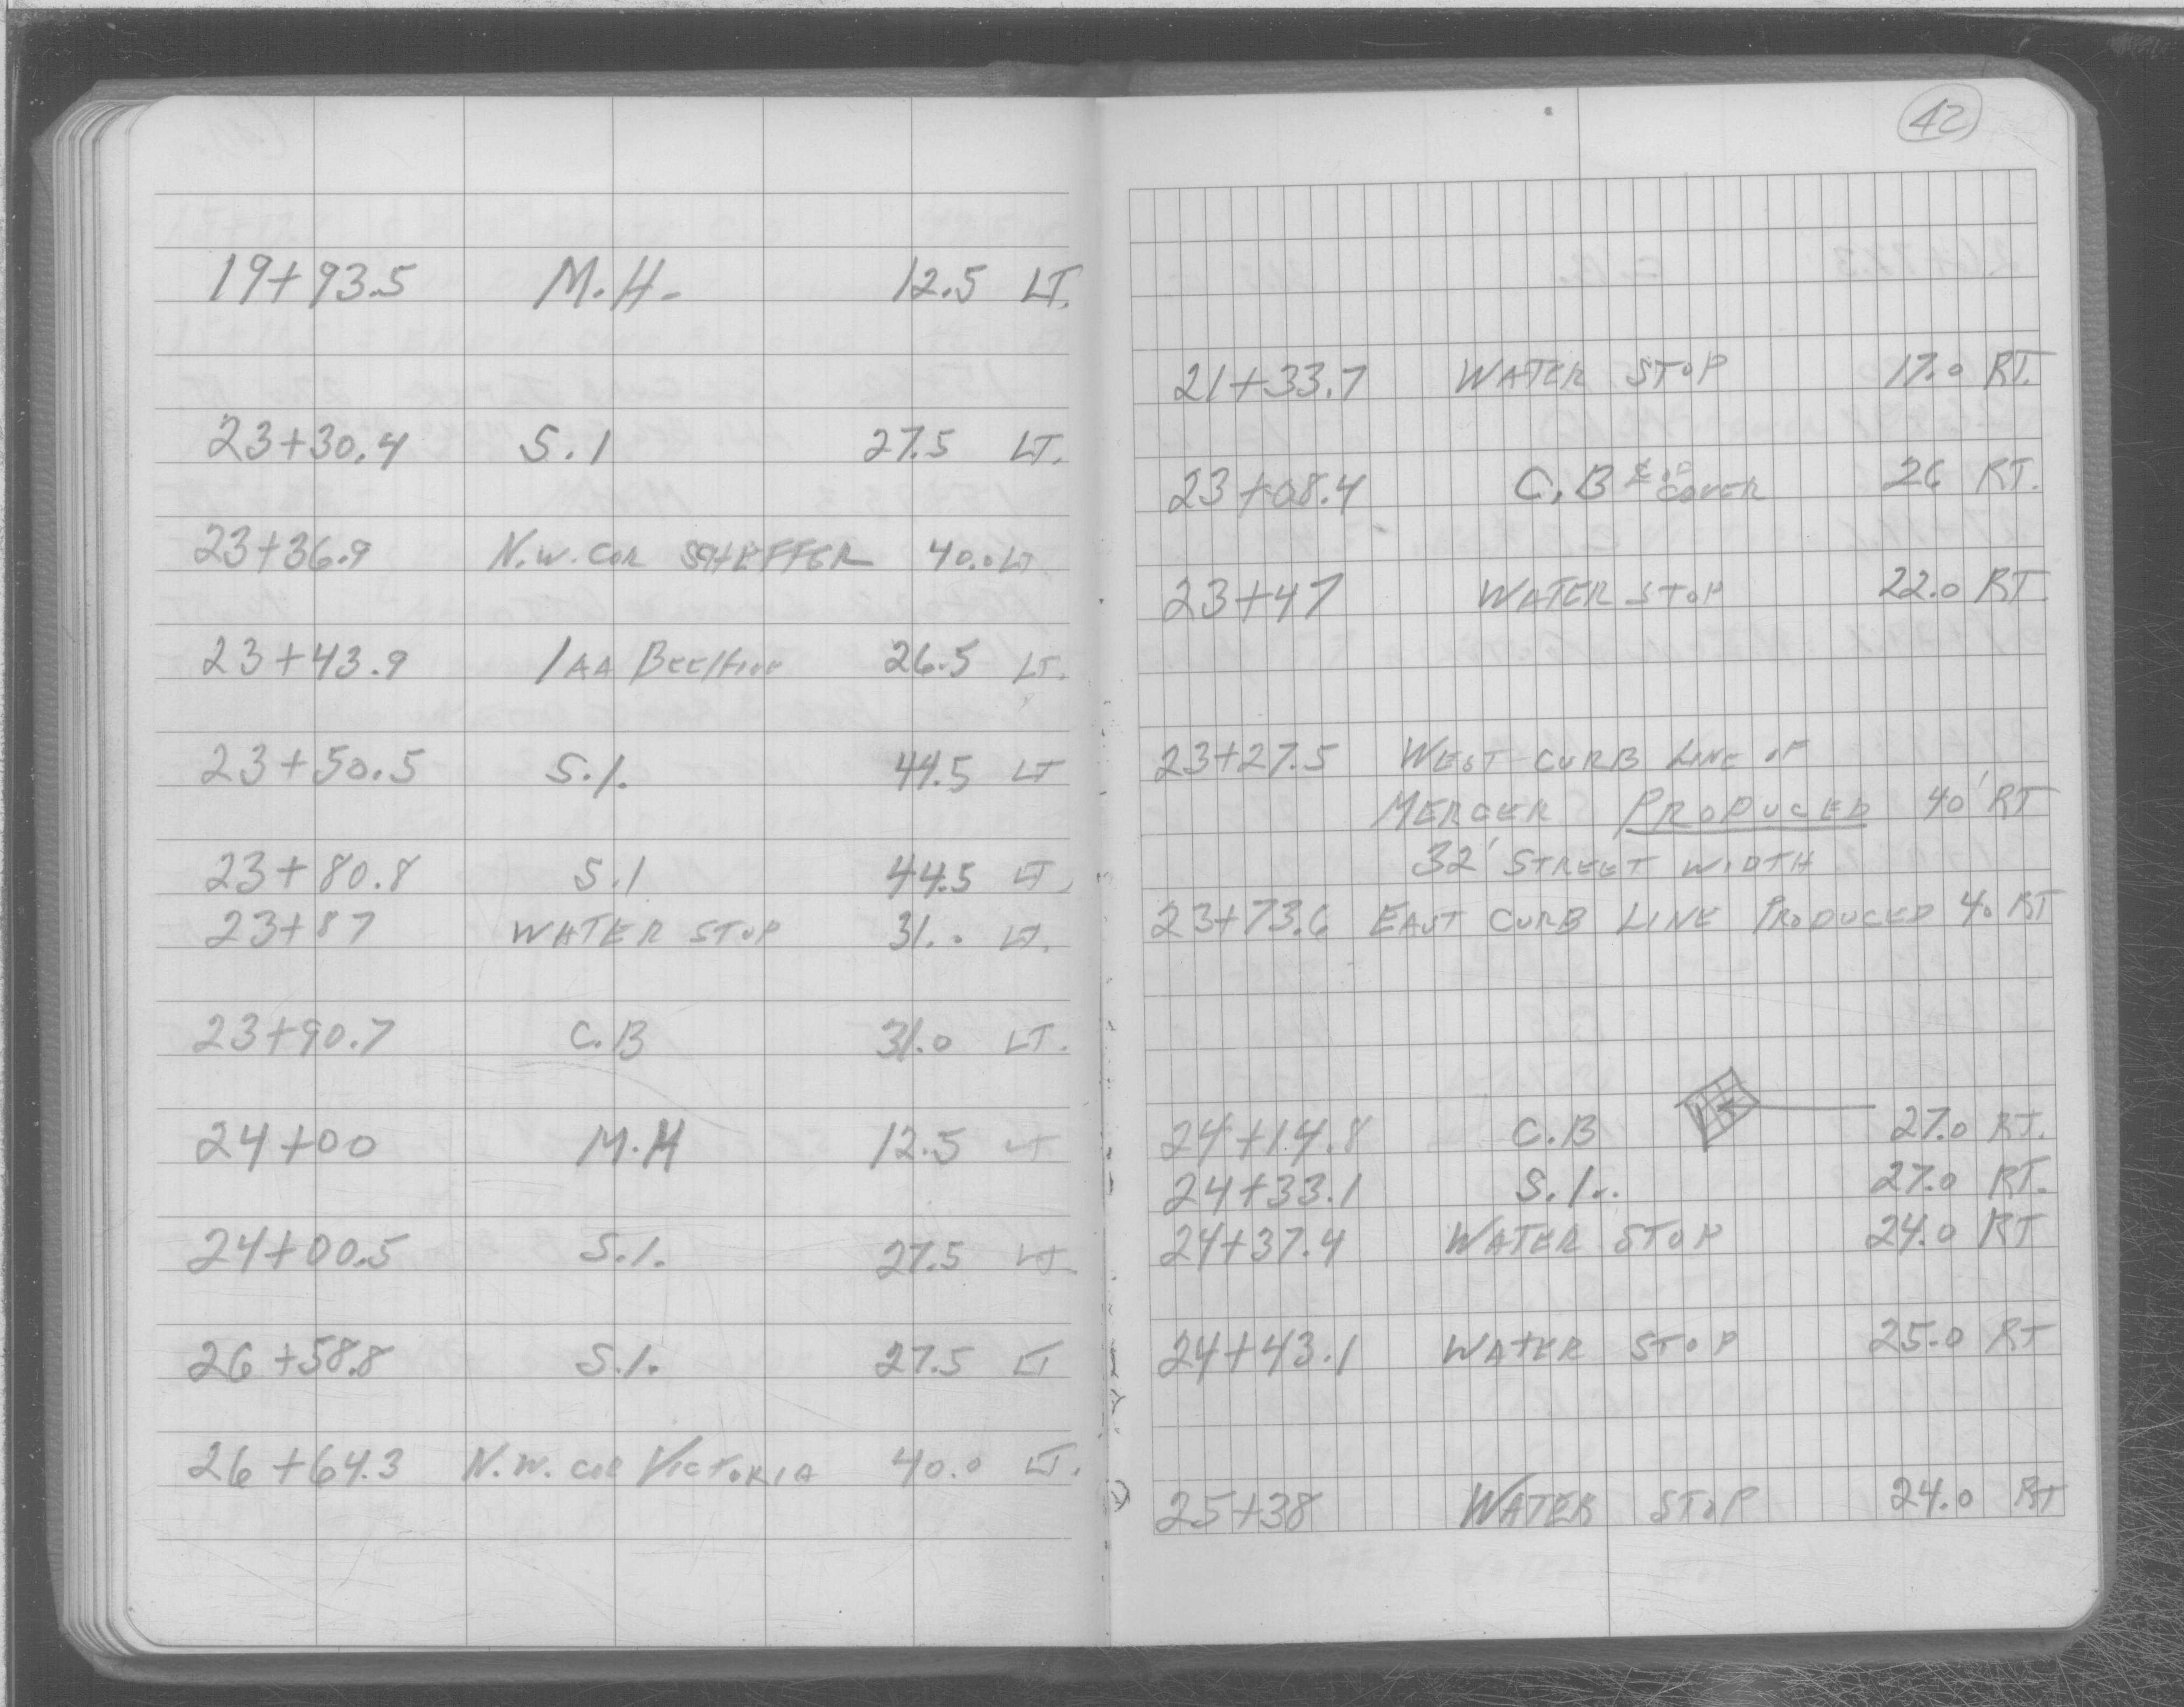 19+93.5 M.H. 12.5 LT.
23+30.4 S.I 27.5 LT.
23+36.9 N.W. COR SCHEFFER 40.0 LT
23+43.9 26.5 LT.
23+50.5 S.I. 44.5 LT
23+80.8 S.I 44.5 LT.
23+87 WATER STOP 31.0 LT.
23+90.7 C.B 31.0 LT.
24+00 M.H 12.5 LT
24+00.5 S.I. 27.5 LT.
26+58.8 S.I. 27.5 LT
26+64.3 N.W. COR VICTORIA 40.0 LT.
42
21+33.7 WATER STOP 17.0 RT.
23+08.4 C.B ℄ OF COVER 26 RT.
23+47 WATER STOP 22.0 RT.
23+27.5 WEST CURB LINE OF
MERCER PRODUCED 40' RT
32' STREET WIDTH
23+73.6 EAST CURB LINE PRODUCED 40 RT
24+14.8 C.B 27.0 RT.
24+33.1 S.I.. 27.0 RT.
24+37.4 WATER STOP 24.0 RT
24+43.1 WATER STOP 25.0 RT
25+38 WATER STOP 24.0 RT